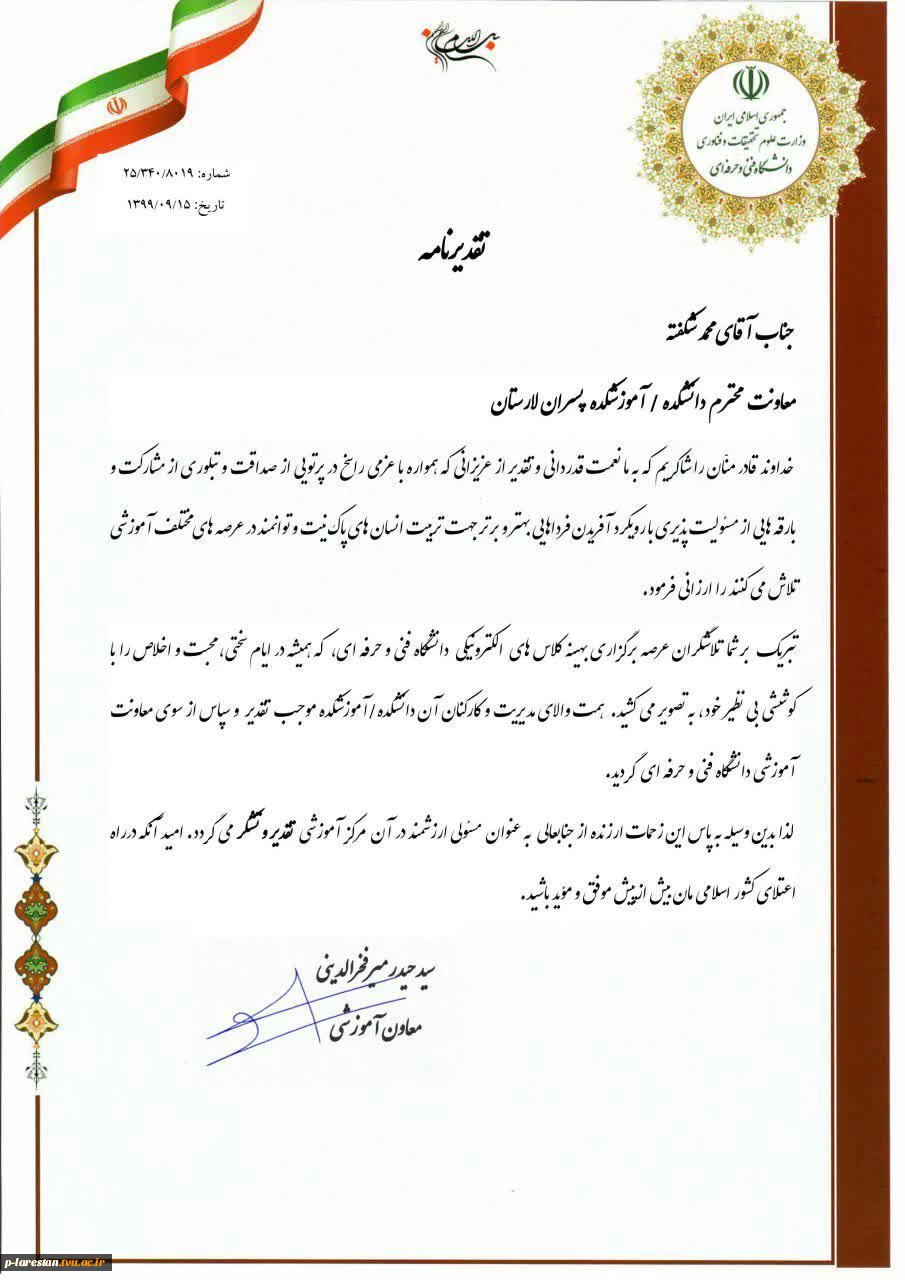 بسم الله الرحمن الرحیم
جمهوری اسلامی ایران
وزارت علوم تحقیقات و فناوری
دانشگاه فنی و حرفه ای
شماره: ۲۵/۳۴۰/۸۰۱۹
تاریخ: ۱۳۹۹/۰۹/۱۵
تقدیرنامه
جناب آقای محمد شگفته
معاونت محترم دانشکده / آموزشکده پسران لارستان
خداوند قادر منّان را شاکریم که به ما نعمت قدردانی و تقدیر از عزیزانی که همواره با عزمی راسخ در پرتویی از صداقت و تبلوری از مشارکت و
بارقه هایی از مسئولیت پذیری با رویکرد آفریدن فرداهایی بهتر و برتر جهت تربیت انسان های پاک نیت و توانمند در عرصه های مختلف آموزشی
تلاش می کنند را ارزانی فرمود.
تبریک بر شما تلاشگران عرصه برگزاری بهینه کلاس های الکترونیکی دانشگاه فنی و حرفه ای، که همیشه در ایام سختی، محبت و اخلاص را با
کوششی بی نظیر خود، به تصویر می کشید. همت والای مدیریت و کارکنان آن دانشکده/آموزشکده موجب تقدیر و سپاس از سوی معاونت
آموزشی دانشگاه فنی و حرفه ای گردید.
لذا بدین وسیله به پاس این زحمات ارزنده از جنابعالی به عنوان مسئولی ارزشمند در آن مرکز آموزشی تقدیر و تشکر می گردد. امید آنکه در راه
اعتلای کشور اسلامی مان بیش از پیش موفق و مؤید باشید.
سید حیدر میرفخرالدینی
معاون آموزشی
p-larestan.tvu.ac.ir